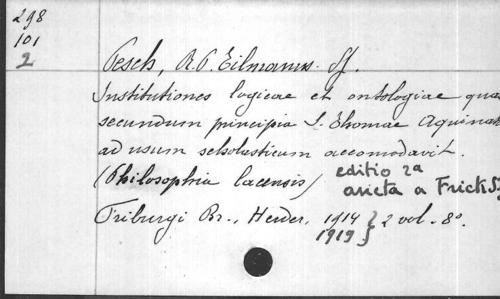 298
101
2
Pesch, R.P. Eilmanus. SJ.
Institutiones logicae et ontologiae quas
secundum principia S. Thomae Aquinatis
ad usum scholasticum accomodavit.
(Philosophia lacensis) editio 2a
aucta a Frick SJ
Friburgi Br., Herder, 1914 } 2 vol. 8º.
1919